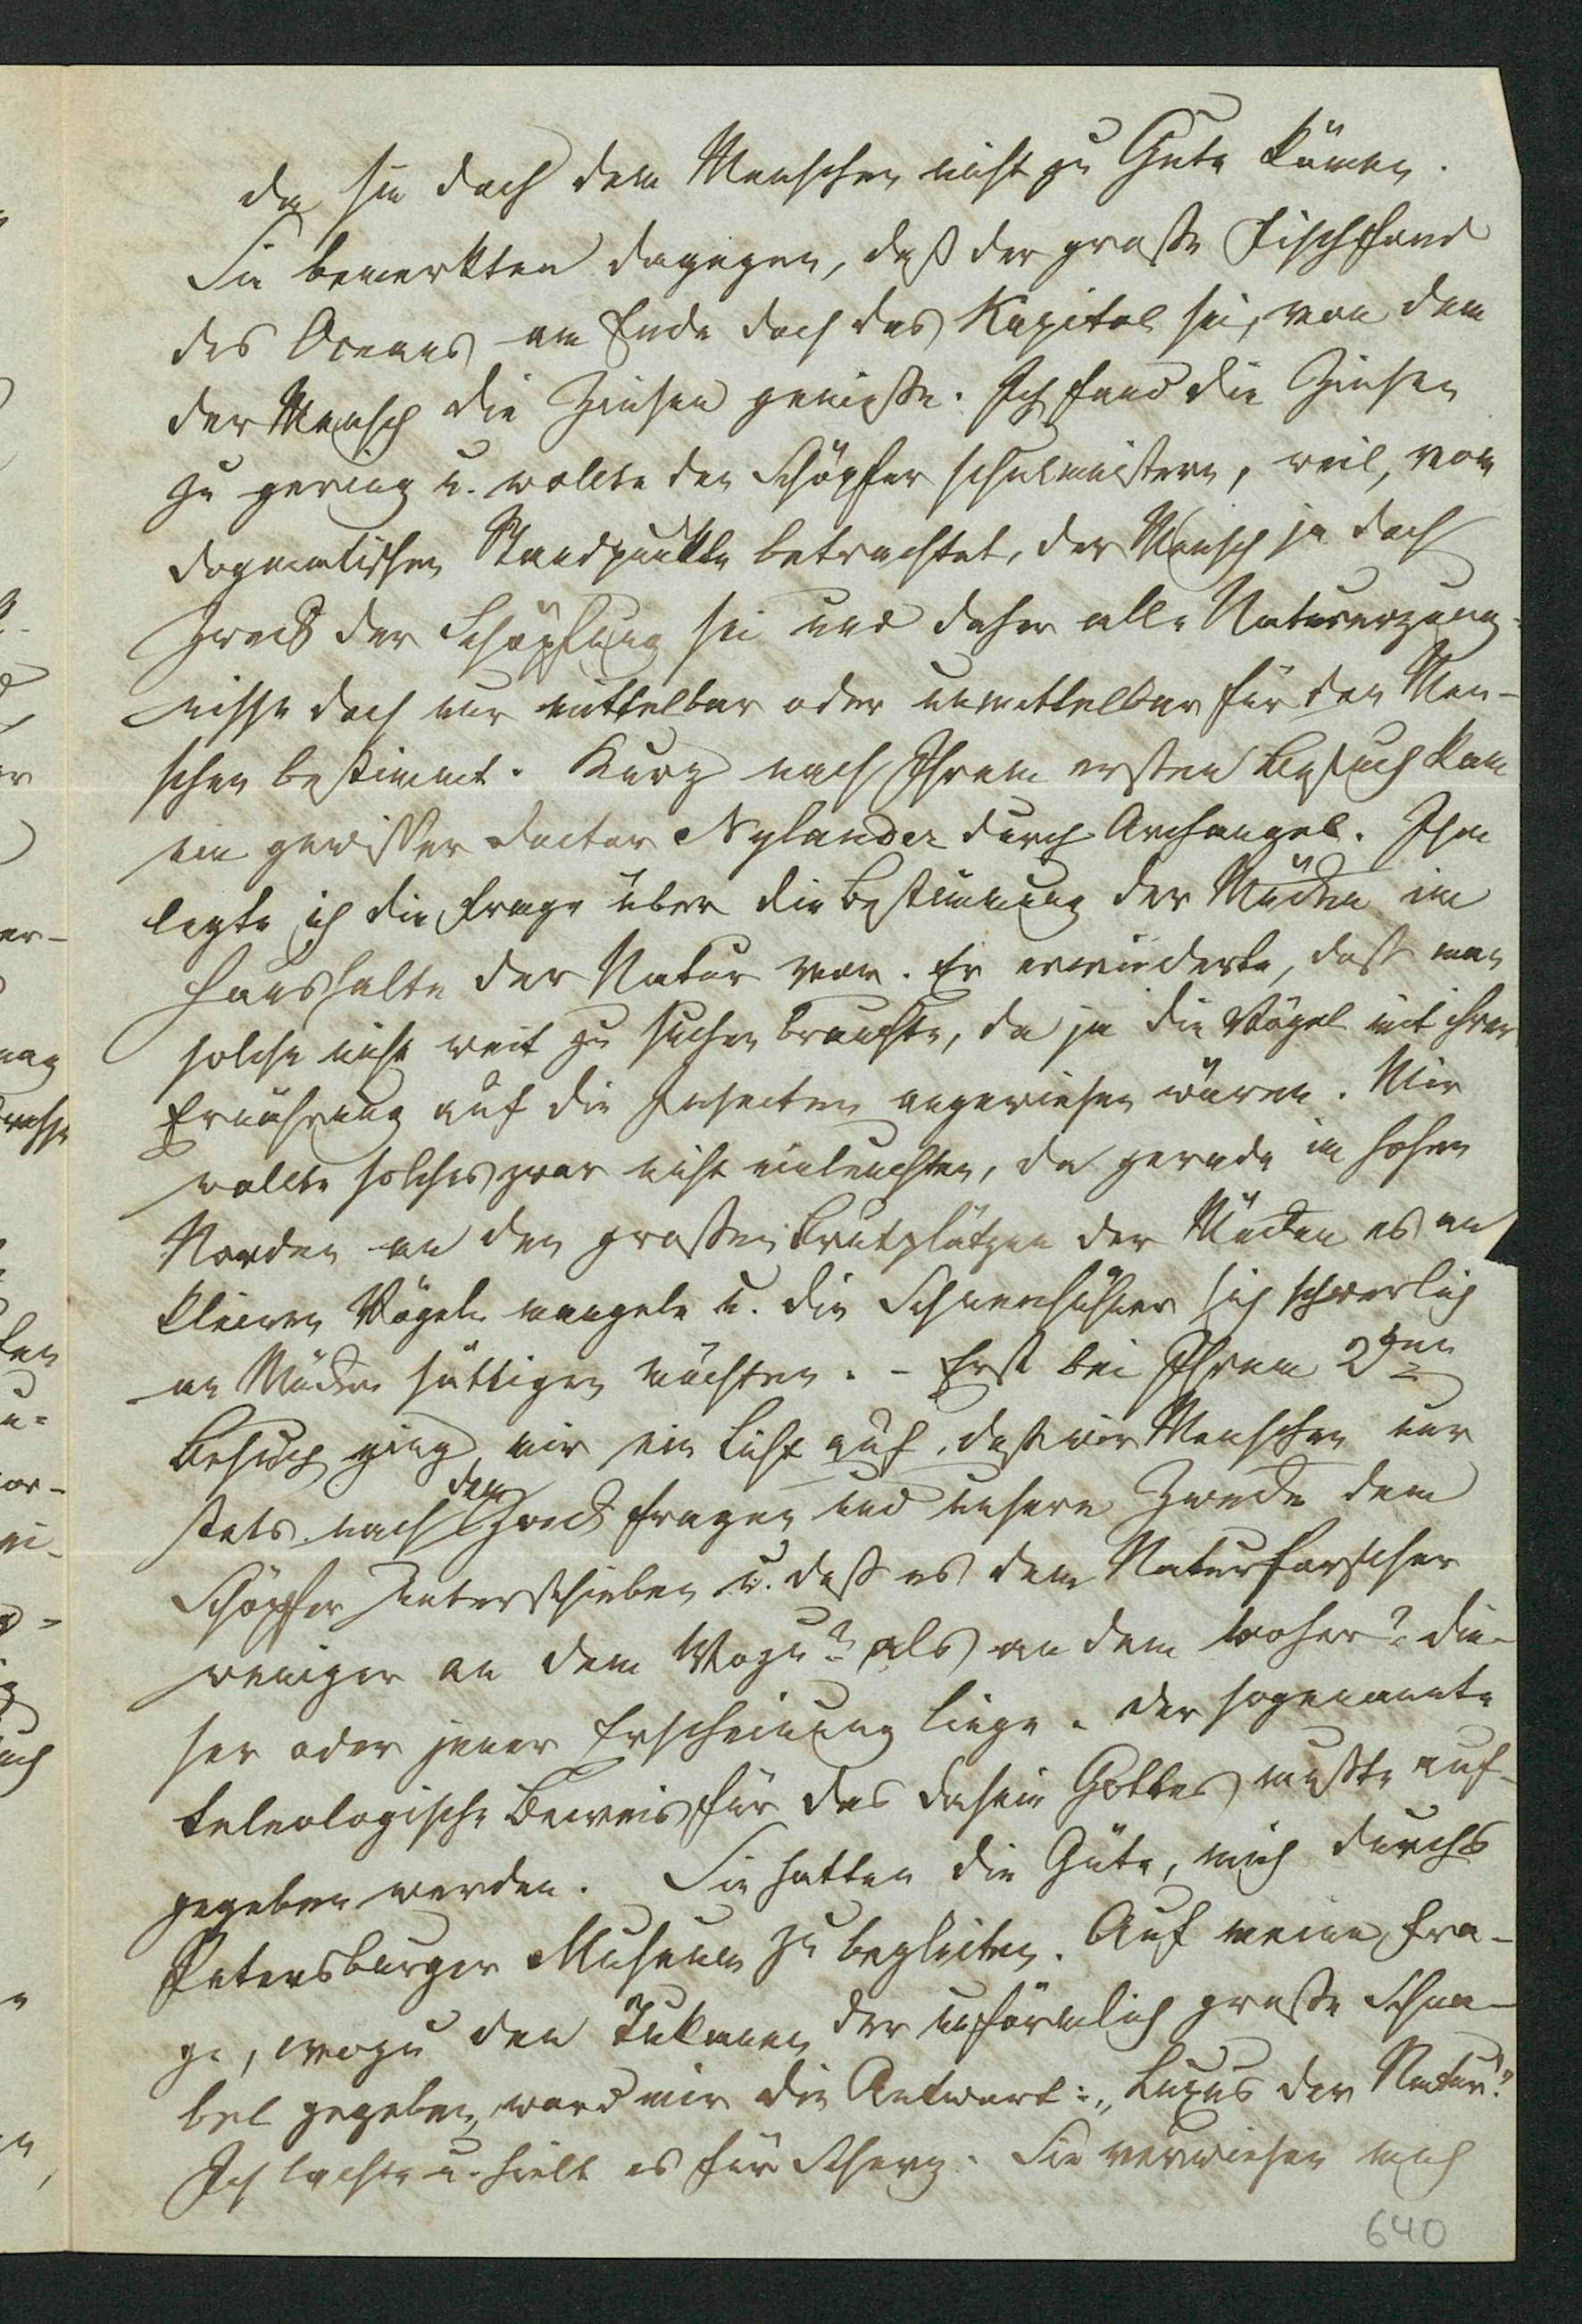 da sie doch dem Menschen nicht zu Gute kämen.
Sie bemerkten dagegen, daß der große Fischfond
des Oceans am Ende doch das Kapital sei, von dem
der Mensch die Zinsen genieße. Ich fand die Zinsen
zu gering u. wollte den Schöpfer schulmeistern, weil, vom
dogmatischen Standpunkte betrachtet, der Mensch ja doch
Zweck der Schöpfung sei und daher alle Naturerzeug-
nisse doch nur mittelbar oder unmittelbar für den Men-
schen bestimmt. Kurz nach Ihrem ersten Besuch kam
ein gewisser Doctor Nylander durch Archangel. Ihm
legte ich die Frage über die Bestimmung der Mücken im
Haushalte der Natur vor. Er erwiederte, daß man
solche nicht weit zu suchen brauchte, da ja die Vögel mit ihrer
Ernährung auf die Insecten angewiesen wären. Mir
wollte solches zwar nicht einleuchten, da gerade im hohen
Norden an den großen Brutplätzen der Mücken es an
kleinen Vögeln mangele u. die Schneehühner sich schwerlich
an Mücken sättigen möchten. – Erst bei Ihrem 2ten
Besuch ging mir ein Licht auf, daß wir Menschen nur
stets nach dem Zweck fragen und unsere Zwecke dem
Schöpfer unterschieben u. daß es dem Naturforscher
weniger an dem Wozu? als an dem woher? die-
ser oder jener Erscheinung liege. Der sogenannte
teleologische Beweis für das Dasein Gottes mußte auf-
gegeben werden. Sie hatten die Güte, mich durchs
Petersburger Museum zu begleiten. Auf meine Fra-
ge, wozu den Tukanen der unförmlich große Schna-
bel gegeben, ward mir die Antwort: „Luxus der Natur“.
Ich lachte u. hielt es für Scherz. Sie verwiesen mich
640